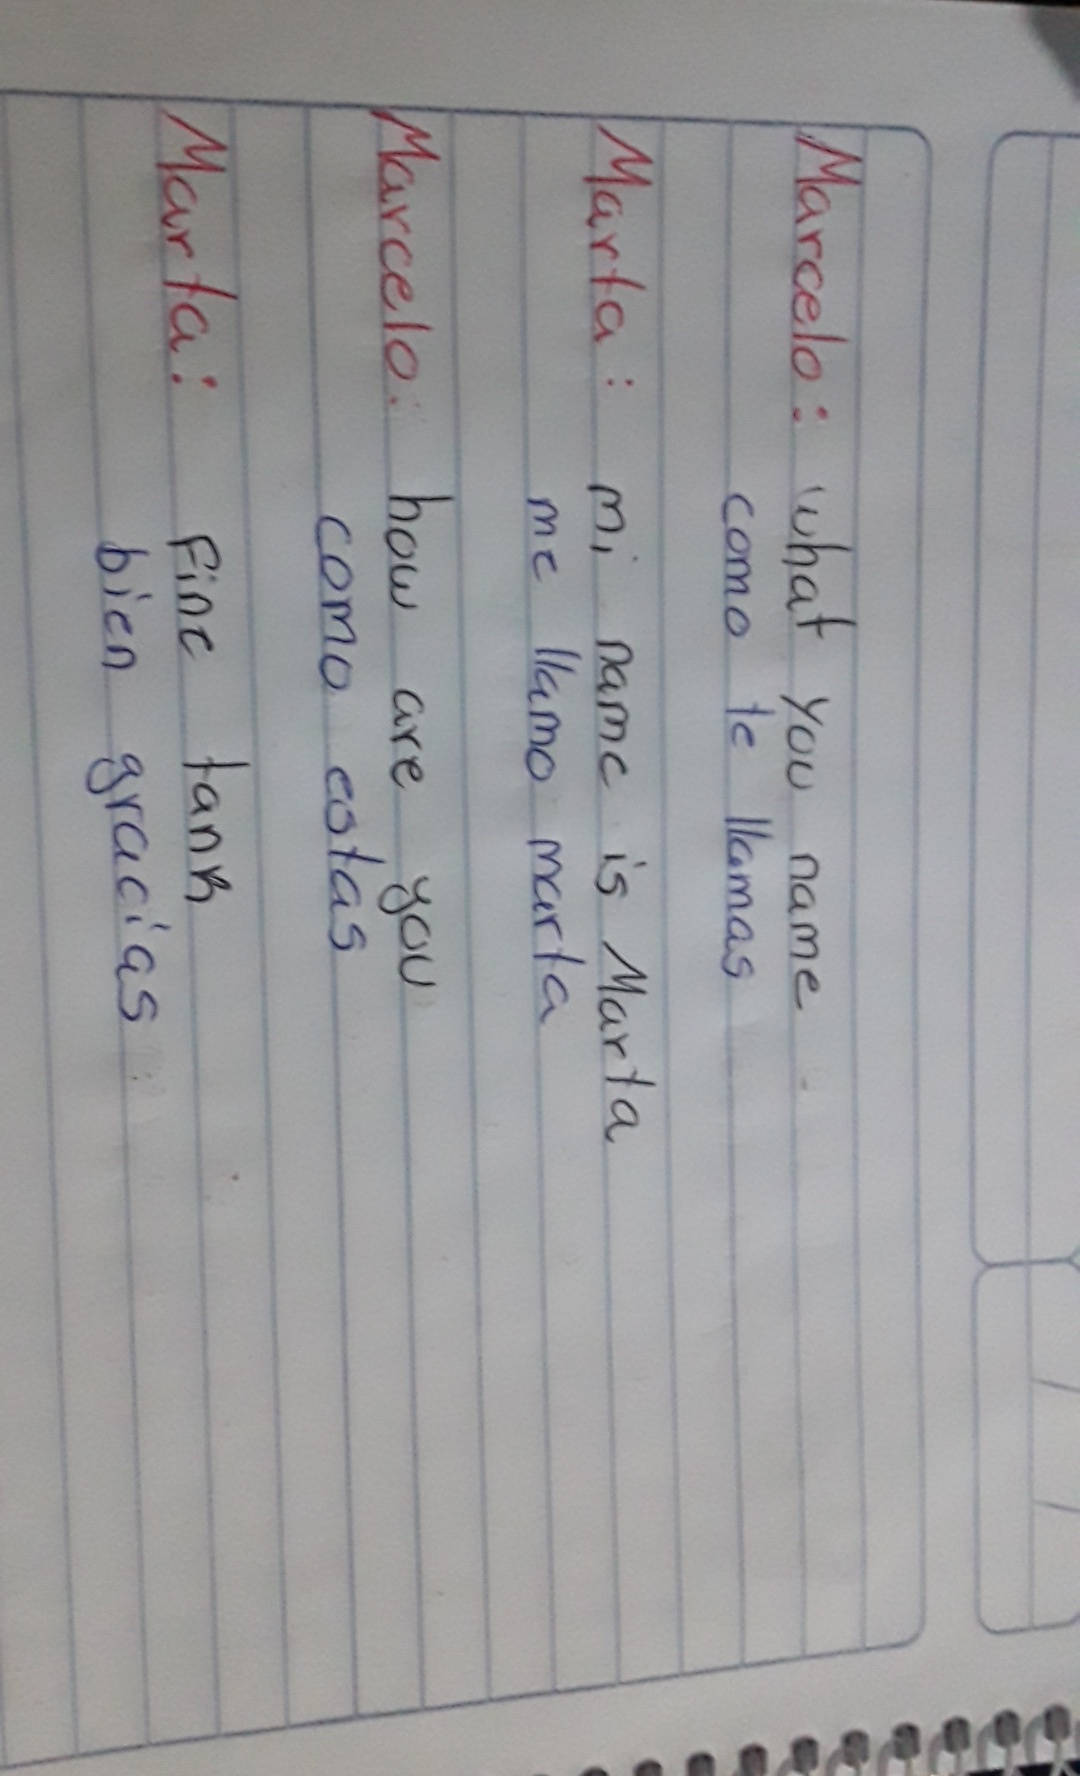 Marcelo: what you name
como te llamas
Marta: mi name is Marta
me llamo marta
Marcelo: how are you
como estas
Marta: Fine tank
bien gracias